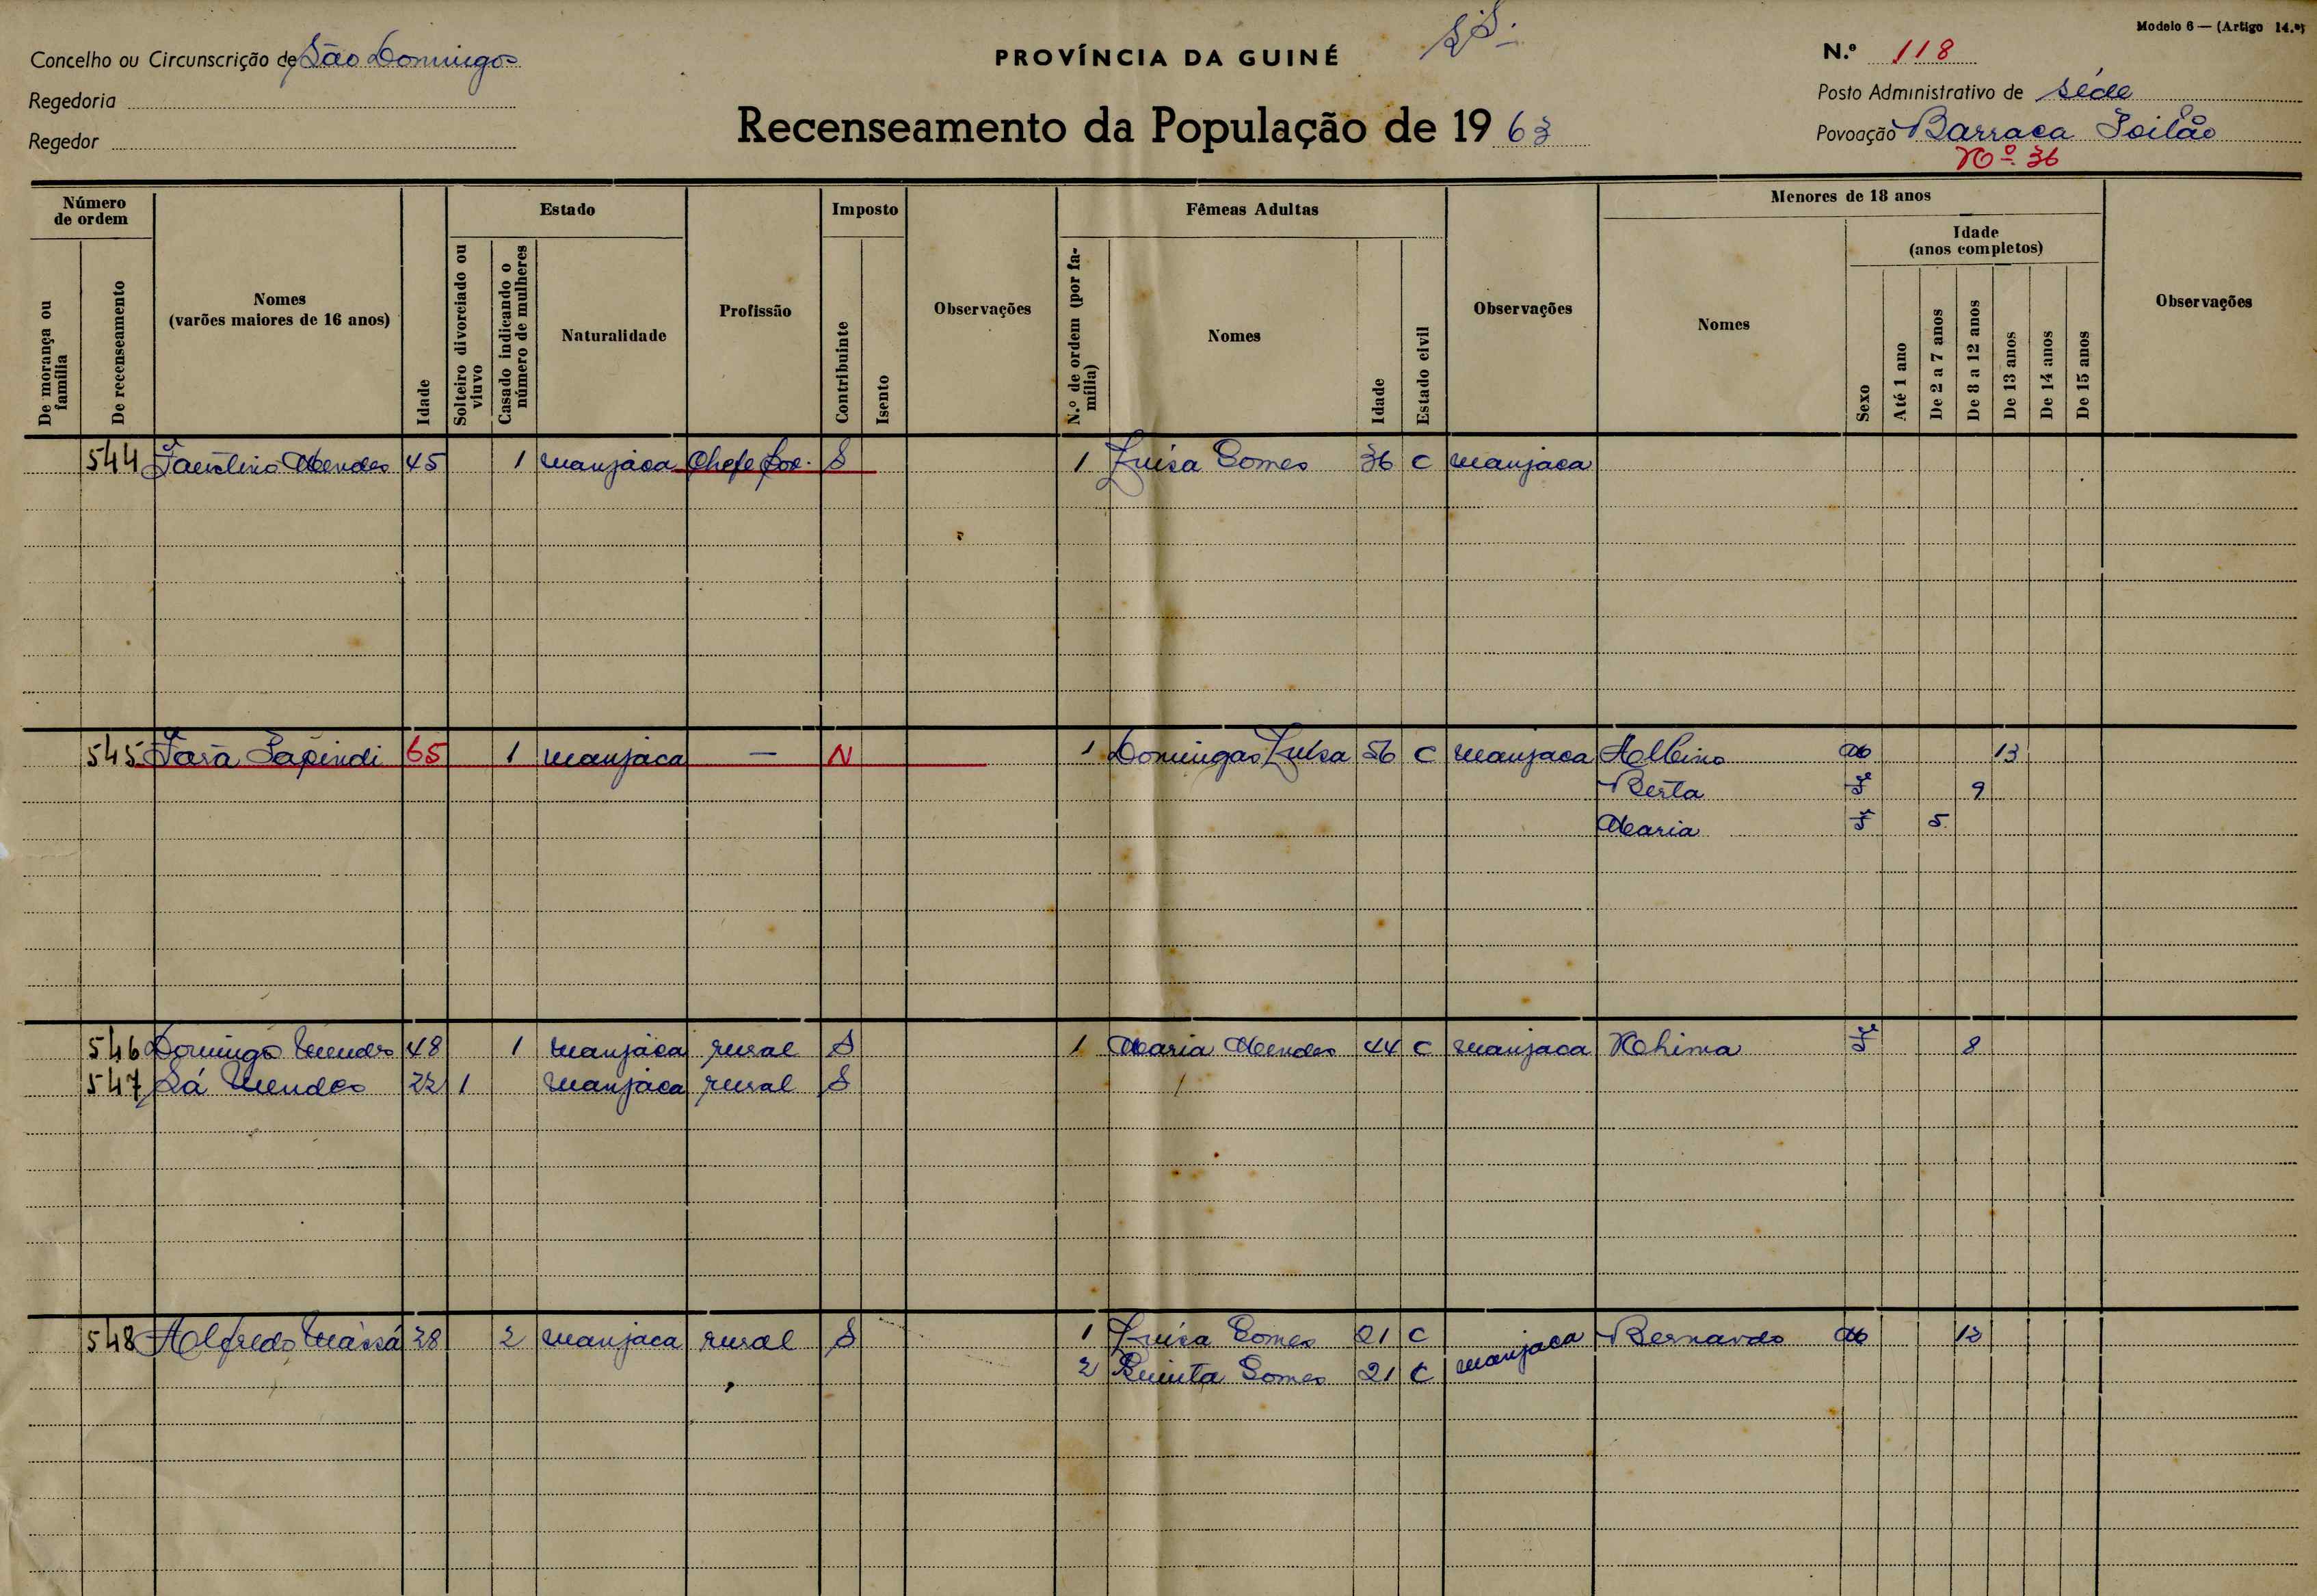 Modelo 6 — (Artigo 14.º)
Concelho ou Circunscrição de São Domingos
PROVÍNCIA DA GUINÉ
N.º 118
Regedoria
Posto Administrativo de Séde
Regedor
Recenseamento da População de 1963
Povoação Barraca Poilão
Nº 36
Número de ordem
De morança ou família
De recenseamento
Nomes
(varões maiores de 16 anos)
Idade
Estado
Solteiro divorciado ou viuvo
Casado indicando o número de mulheres
Naturalidade
Profissão
Imposto
Contribuinte
Isento
Observações
Fêmeas Adultas
N.º de ordem (por família)
Nomes
Idade
Estado civil
Observações
Menores de 18 anos
Nomes
Sexo
Idade
(anos completos)
Até 1 ano
De 2 a 7 anos
De 8 a 12 anos
De 13 anos
De 14 anos
De 15 anos
Observações
544 Faustino Mendes 45 1 manjaca Chefe S 1 Luisa Gomes 36 C manjaca
545 65 1 manjaca — N 1 Domingas Luisa 56 C manjaca Albino M 13
Berta F 9
Maria F 5
546 Domingo Mendes 48 1 manjaca rural S 1 Maria Mendes 44 C manjaca F 8
547 Sá Mendes 22 1 manjaca rural S
548 Alfredo 28 2 manjaca rural S 1 Luisa Gomes 21 C manjaca Bernardo M 12
2 Quinta Gomes 21 C